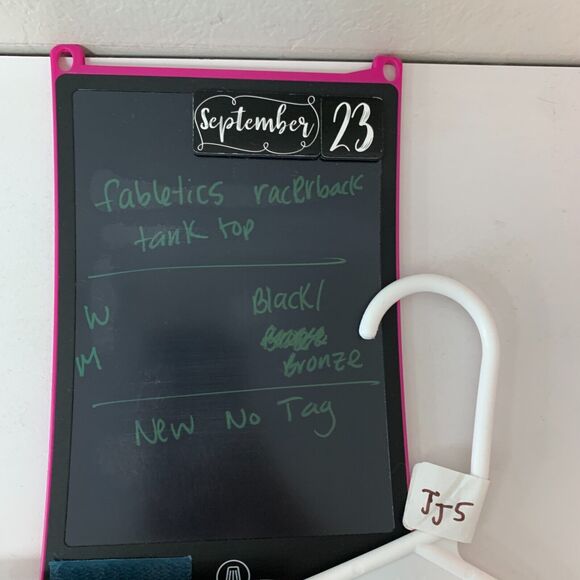 September 23
fabletics racerback
tank top
W Black/
M Bronze
New No Tag
JJS